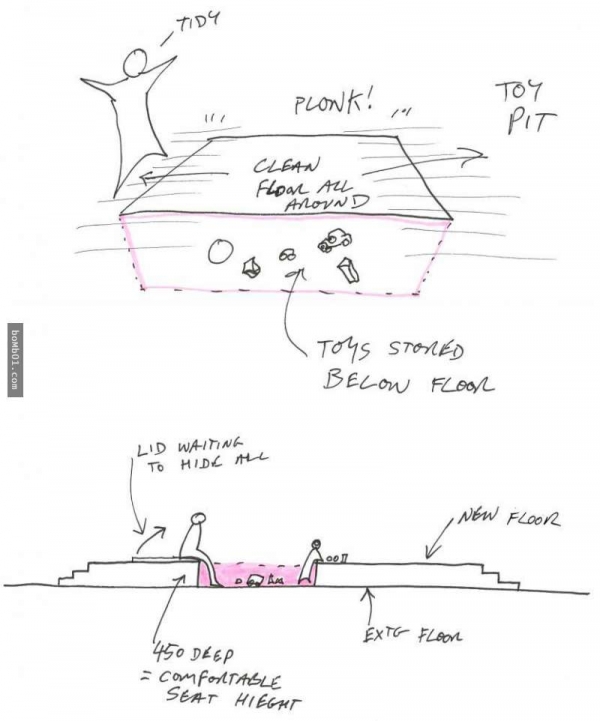 TIDY
PLONK!
TOY
PIT
CLEAN
FLOOR ALL
AROUND
TOYS STORED
BELOW FLOOR
boMb01.com
LID WAITING
TO HIDE ALL
NEW FLOOR
EXTG FLOOR
450 DEEP
= COMFORTABLE
SEAT HIEGHT